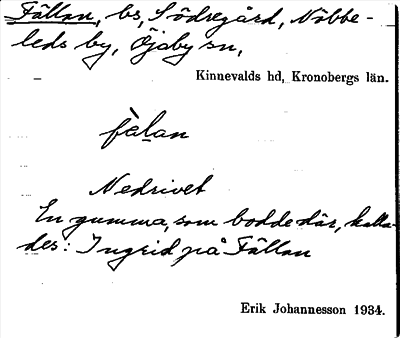 Fällan, bs, Södregård, Nöbbe-
leds by, Öjaby sn,
Kinnevalds hd, Kronobergs län.
fàlan
Nedrivet
En gumma, som bodde där, kalla-
des: Ingrid på Fällan
Erik Johannesson 1934.